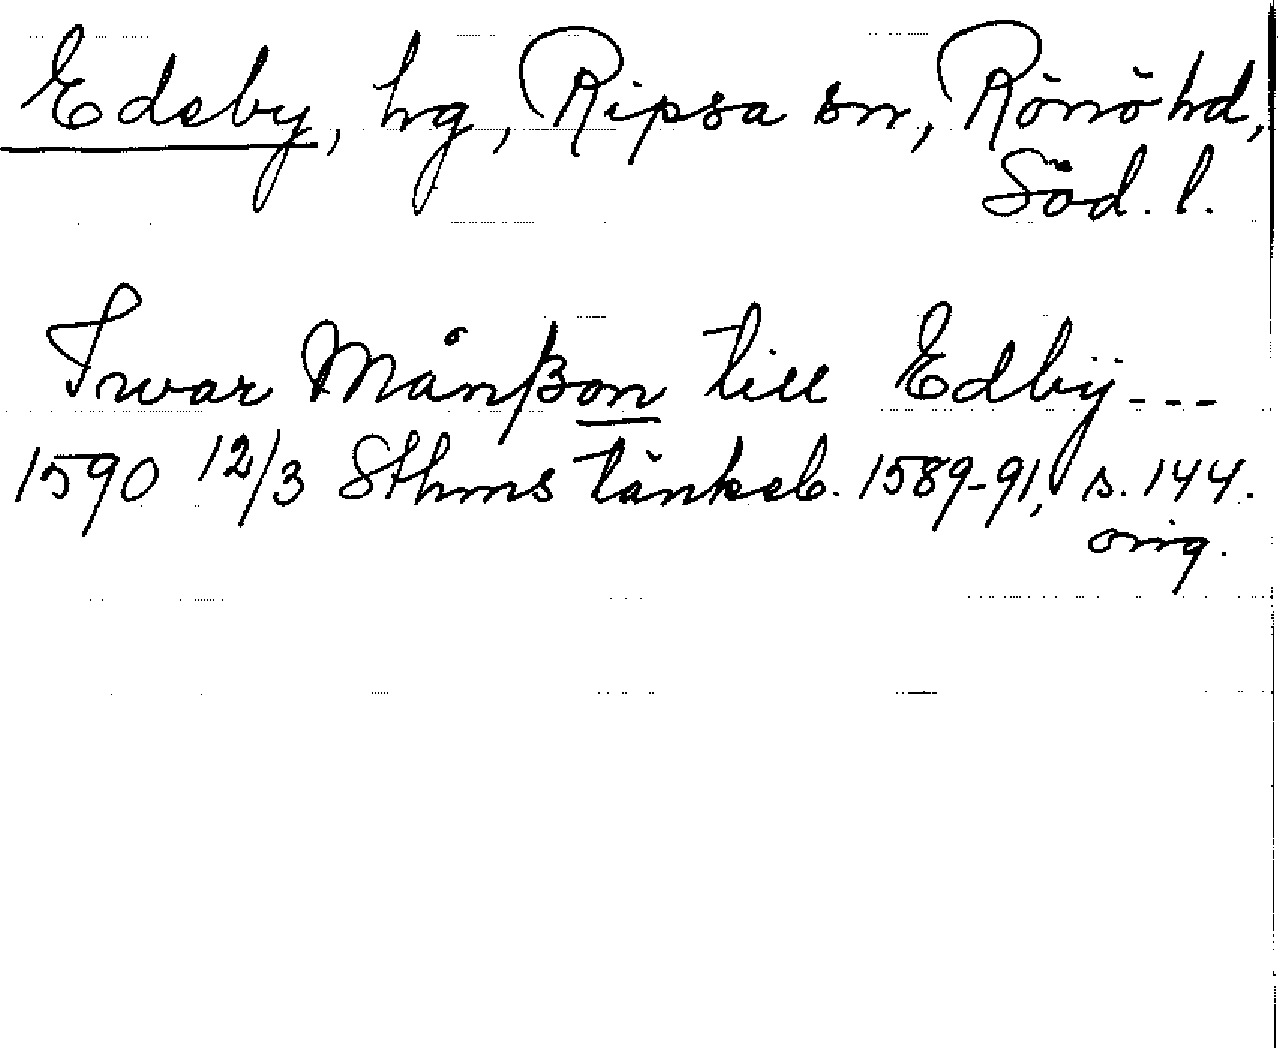 Edeby, hg, Ripsa sn, Rönö hd,
Söd. l.
Iwar Månßon till Edbÿ---
1590 12/3 Sthms tänkeb. 1589-91, s. 144.
orig.